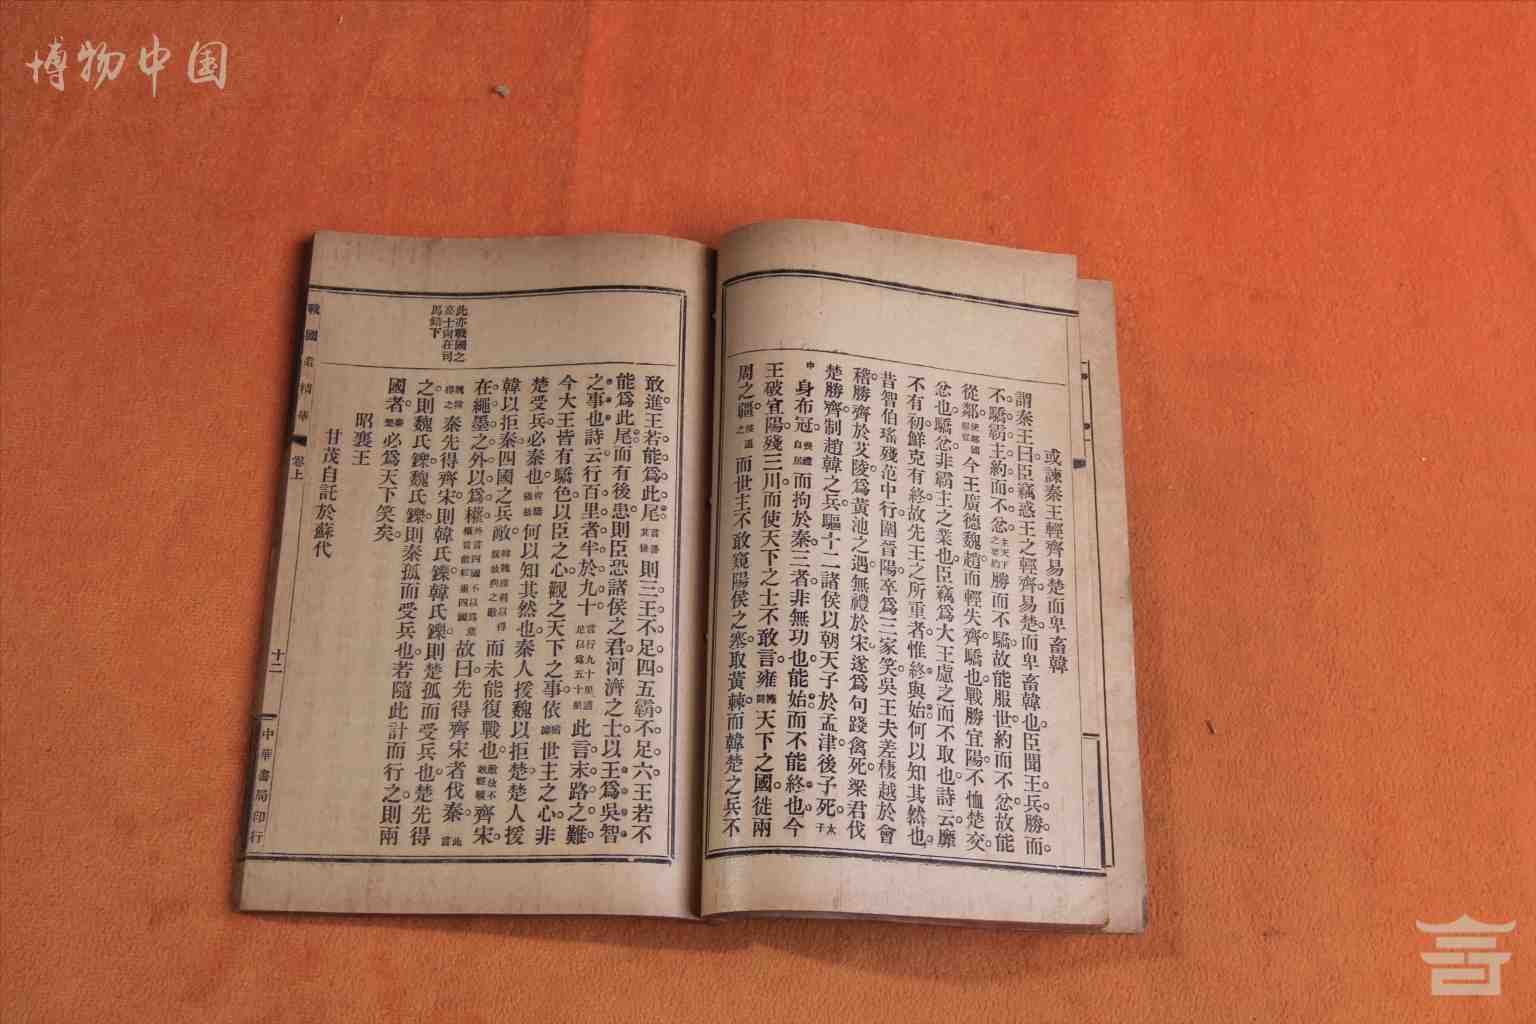 博物中国
或諫秦王輕齊易楚而卑畜韓
謂秦王曰臣竊惑王之輕齊易楚而卑畜韓也臣聞王兵勝而
不驕霸主約而不忿主天下之要約勝而不驕故能服世約而不忿故能
從鄰使鄰國服從今王廣德魏趙而輕失齊驕也戰勝宜陽不恤楚交
忿也驕忿非霸主之業也臣竊爲大王慮之而不取也詩云靡
不有初鮮克有終故先王之所重者惟終與始何以知其然也
昔智伯瑤殘范中行圍晉陽卒爲三家笑吳王夫差棲越於會
稽勝齊於艾陵爲黃池之遇無禮於宋遂爲句踐禽死梁君伐
楚勝齊制趙韓之兵驅十二諸侯以朝天子於孟津後子死太子
申身布冠喪禮自居而拘於秦三者非無功也能始而不能終也今
王破宜陽殘三川而使天下之士不敢言雍天下之國徙兩
周之疆而世主不敢窺陽侯之塞取黃棘而韓楚之兵不
敢進王若能爲此尾則三王不足四五霸不足六王若不
能爲此尾而有後患則臣恐諸侯之君河濟之士以王爲吳智
之事也詩云行百里者半於九十言行九十里適足以爲五十里此言末路之難
今大王皆有驕色以臣之心觀之天下之事依世主之心非
楚受兵必秦也何以知其然也秦人援魏以拒楚楚人援
韓以拒秦四國之兵敵而未能復戰也齊宋
在繩墨之外以爲權故曰先得齊宋者伐秦
秦先得齊宋則韓氏鑠韓氏鑠則楚孤而受兵也楚先得
之則魏氏鑠魏氏鑠則秦孤而受兵也若隨此計而行之則兩
國者必爲天下笑矣
昭襄王
甘茂自託於蘇代
此亦戰國之
高士尚在司
馬錯下
戰國策精華 卷上 十二 中華書局印行